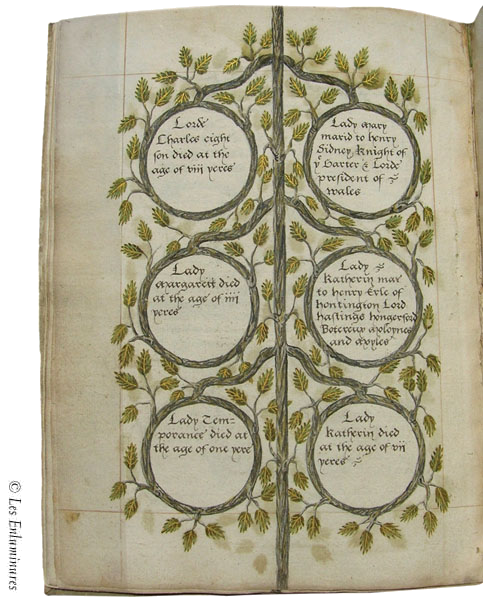 Lorde
Charles eight
son died at the
age of viij yeres
Lady Mary
marid to henry
Sidney Knight of
y Garter & Lorde
president of
wales
Lady
Margarett died
at the age of iiij
yeres
Lady
Katherin mar
to henry Erle of
hontington Lord
hastings hongerford
Botereux
and
Lady Tem-
porance died at
the age of one yere
Lady
Katherin died
at the age of vij
yeres
© Les Enluminures